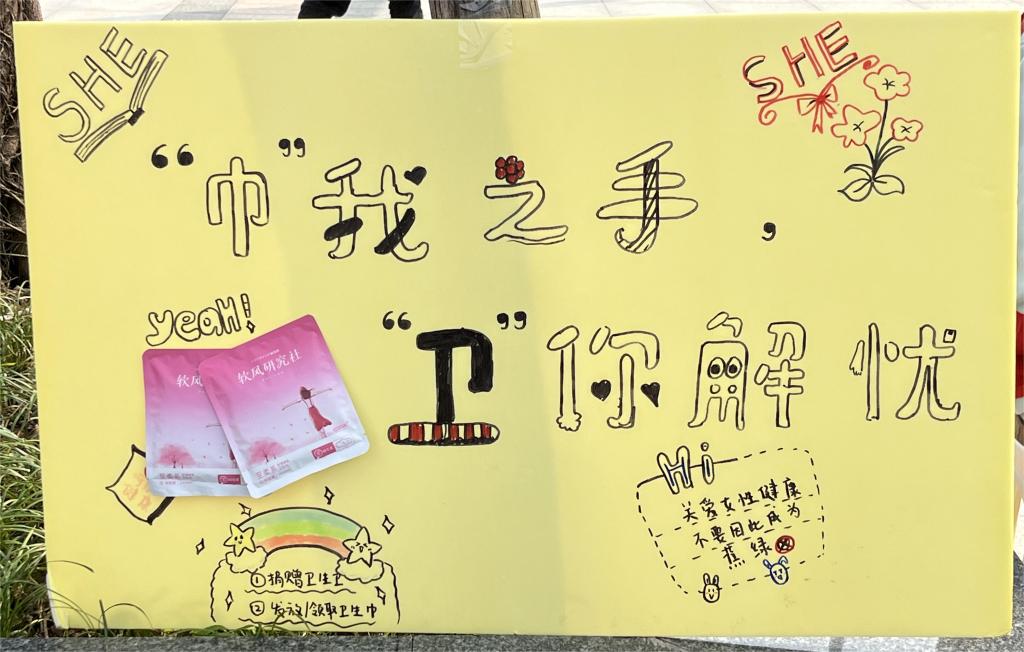 SHE
SHE
“巾”我之手，
yeah!
“卫”你解忧
软风
软风研究社
Hi
关爱女性健康
不要因此成为
蕉绿
①捐赠卫生巾
②发放/领取卫生巾